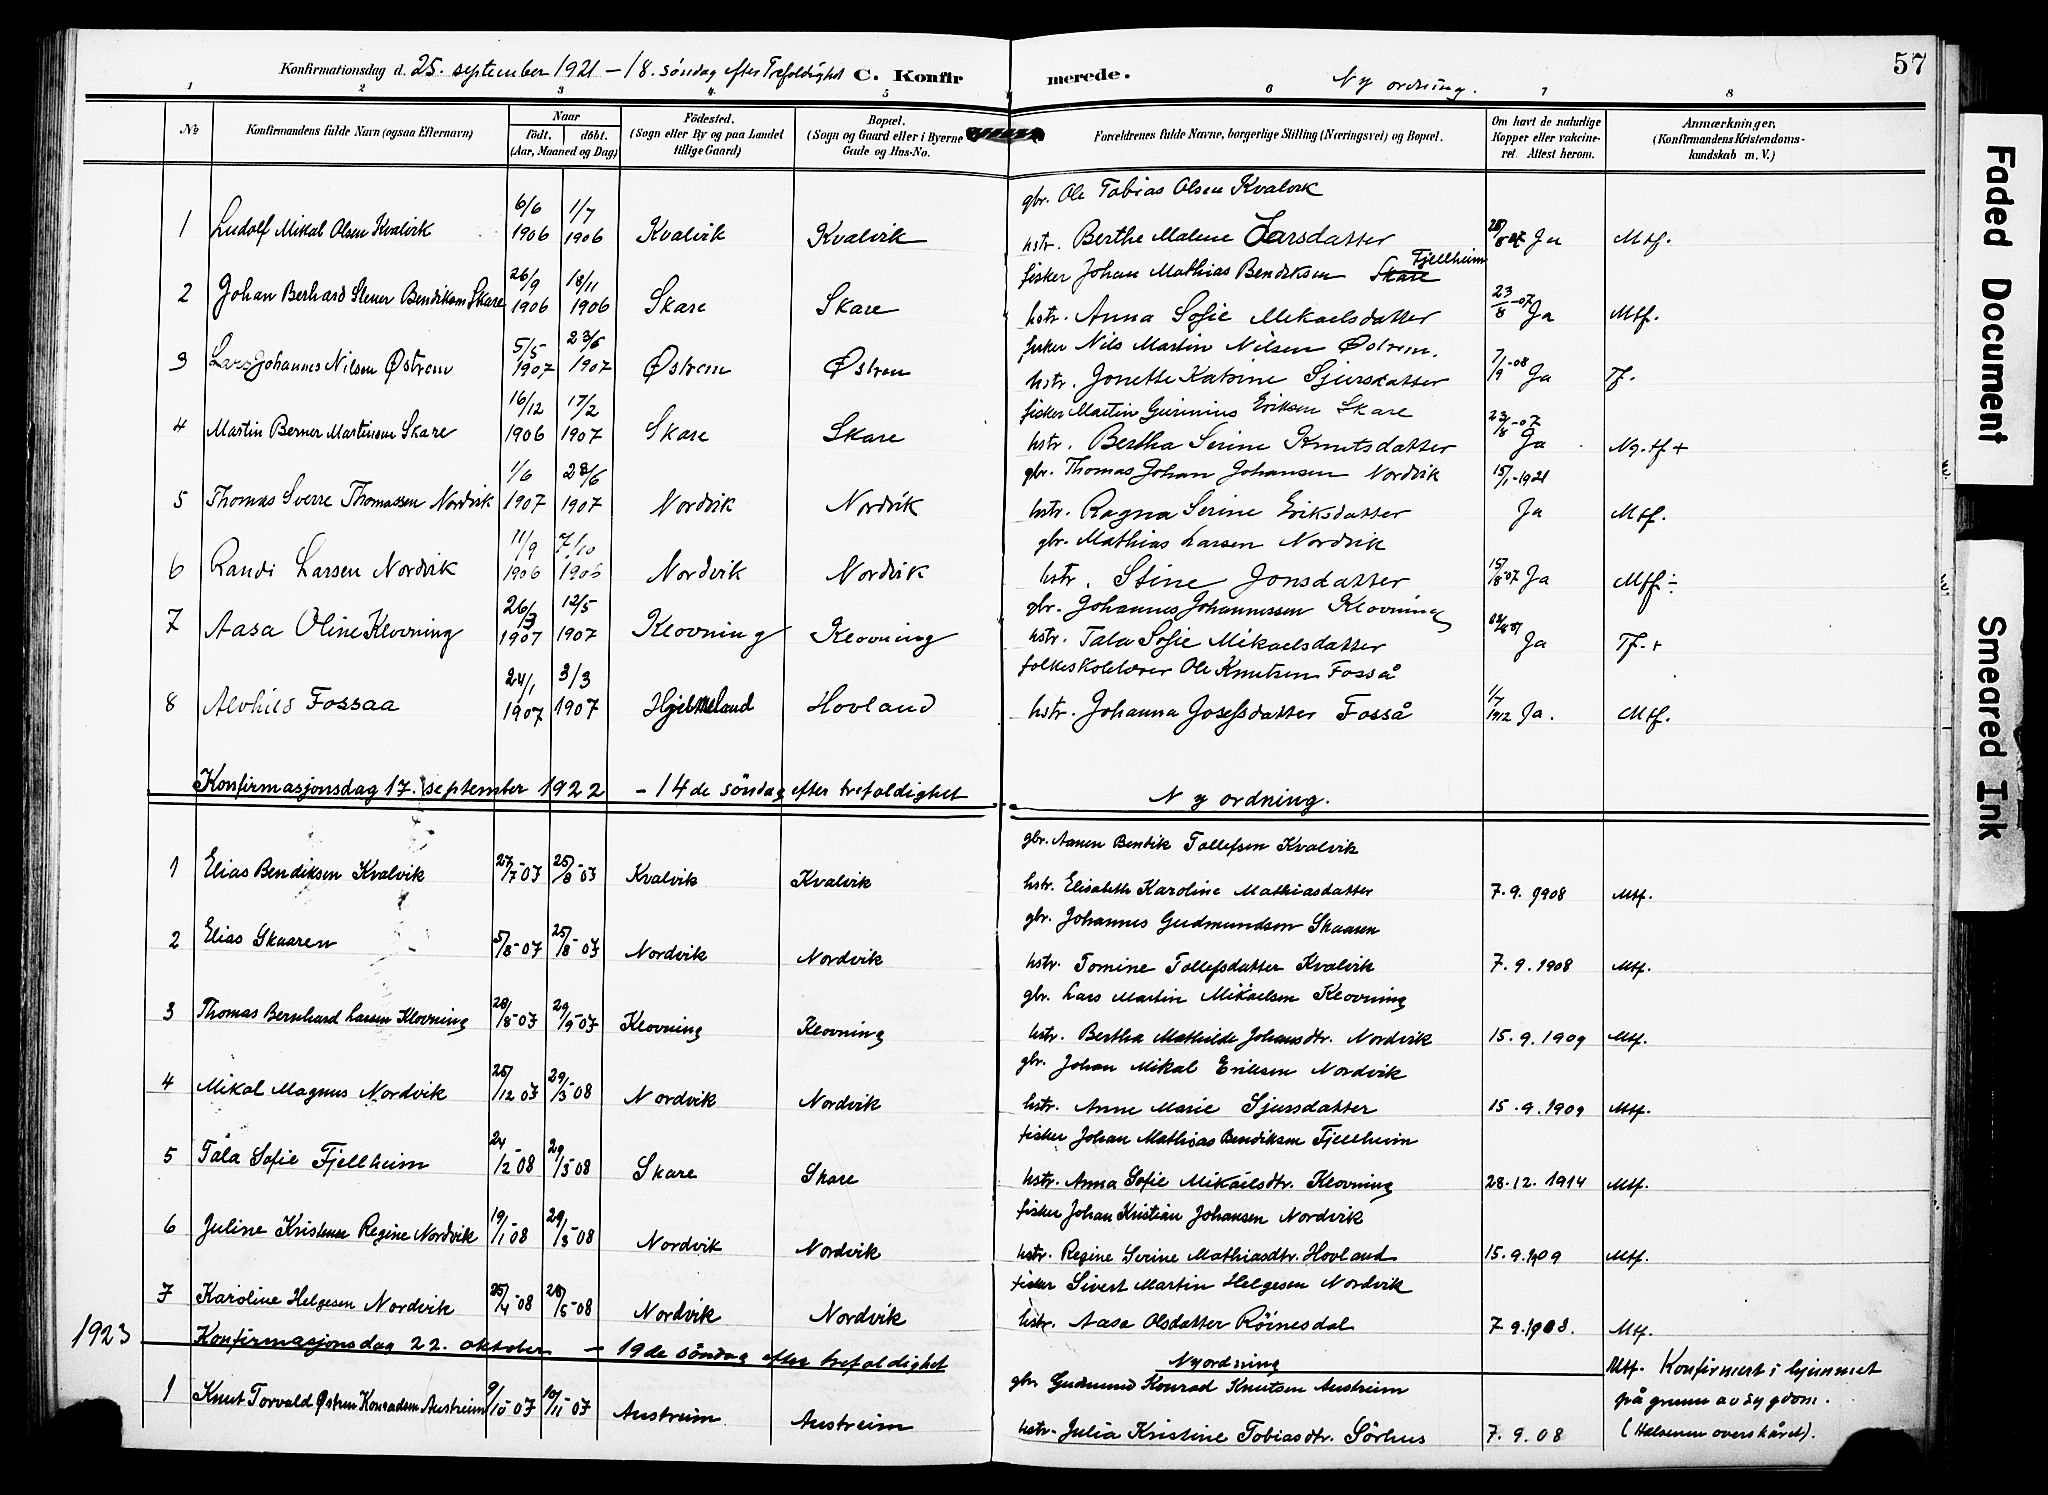 57
Konfirmationsdag d. 25. september 1921 - 18. søndag efter Trefoldighet C. Konfirmerede. Ny ordning.
1 2 3 4 5 6 7 8
No Konfirmandens fulde Navn (ogsaa Efternavn) Naar født. døbt. (Aar, Maaned og Dag) Fødested. (Sogn eller By og paa Landet tillige Gaard) Bopæl. (Sogn og Gaard eller i Byerne Gade og Hus-No. Forældrenes fulde Navne, borgerlige Stilling (Næringsvei) og Bopæl. Om havt de naturlige Kopper eller vakcineret. Attest herom. Anmærkninger, (Konfirmandens Kristendomskundskab m. V.)
6/6 1/7 gbr. Ole Tobias Olsen Kvalvik
1 Ludolf Mikal Olsen Kvalvik 1906 1906 Kvalvik Kvalvik hstr. Berthe Malene Larsdatter Ja Mtf.
26/9 18/11 fisker Johan Mathias Bendiksen Skare Fjellheim
2 Johan Berhard Stener Bendiksen Skare 1906 1906 Skare Skare hstr. Anna Sofie Mikaelsdatter 23/8-07 Ja Mtf.
5/5 23/6 fisker Nils Martin Nilsen Østrem.
3 Lars Johannes Nilsen Østrem 1907 1907 Østrem Østrem hstr. Jonette Katrine Sjursdatter 7/9-08 Ja Tf.
16/12 17/2 fisker Martin Guninius Eriksen Skare
4 Martin Berner Martinsen Skare 1906 1907 Skare Skare hstr. Bertha Serine Knutsdatter 23/8-07 Ja Ng. tf +
1/6 23/6 gbr. Thomas Johan Johansen Nordvik
5 Thomas Sverre Thomassen Nordvik 1907 1907 Nordvik Nordvik hstr. Ragna Serine Eriksdatter 15/1-1921 Ja Mtf.
11/9 7/10 gbr. Mathias Larsen Nordvik
6 Randi Larsen Nordvik 1906 1906 Nordvik Nordvik hstr. Stine Jonsdatter 15/8 07 Ja Mtf ÷
26/3 12/5 gbr. Johannes Johannessen Klovning
7 Aasa Oline Klovning 1907 1907 Klovning Klovning hstr. Tala Sofie Mikaelsdatter Ja Tf. +
24/1 3/3 folkeskolelærer Ole Knutsen Fosså
8 Alvhild Fossaa 1907 1907 Hjelmeland Hovland hstr. Johanna Josefsdatter Fosså 1/7 1912 Ja. Mtf.
Konfirmasjonsdag 17. september 1922 - 14 de søndag efter trefoldighet Ny ordning.
gbr. Aanen Bendik Tollefsen Kvalvik
1 Elias Bendiksen Kvalvik 27/7-07 25/8-07 Kvalvik Kvalvik hstr. Elisabeth Karoline Mathiasdatter 7.9.1908 Mtf.
gbr. Johannes Gudmundsen Skaaren
2 Elias Skaaren 5/8-07 25/8-07 Nordvik Nordvik hstr. Tomine Tollefsdatter Kvalvik 7.9.1908 Mtf.
gbr. Lars Martin Mikaelsen Klovning
3 Thomas Bernhard Larsen Klovning 28/8-07 29/9-07 Klovning Klovning hstr. Bertha Mathilde Johansdtr. Nordvik 15.9.1909 Mtf.
gbr. Johan Mikal Eriksen Nordvik
4 Mikal Magnus Nordvik 25/12 07 29/3-08 Nordvik Nordvik hstr. Anne Marie Sjursdatter 15.9.1909 Mtf.
fisker Johan Mathias Bendiksen Fjellheim
5 Tåla Sofie Fjellheim 24/2-08 29/3-08 Skare Skare hstr. Anna Sofie Mikaelsdtr. Klovning 28.12.1914 Mtf.
fisker Johan Kristian Johansen Nordvik
6 Juline Kristense Regine Nordvik 19/1-08 29/3-08 Nordvik Nordvik hstr. Regine Serine Mathiasdtr. Hovland 15.9.1909 Mtf.
fisker Sivert Martin Helgesen Nordvik
7 Karoline Helgesen Nordvik 25/4-08 28/5-08 Nordvik Nordvik hstr. Aasa Olsdatter Röinesdal 7.9.1908. Mtf.
1923 Konfirmasjonsdag 22. oktober - 19 de søndag efter trefoldighet Ny ordning
gbr Gudmund Konrad Knutsen Austreim Mtf. Konfirmert i hjemmet
1 Knut Torvald Østrem Konradsen Austreim 9/10-07 10/11-07 Austreim Austreim på grunn av sygdom.
hstr. Julia Kristine Tobiasdtr. Sörhus 7.9.08 (Halsenen overskåret).
Faded Document
Smeared Ink